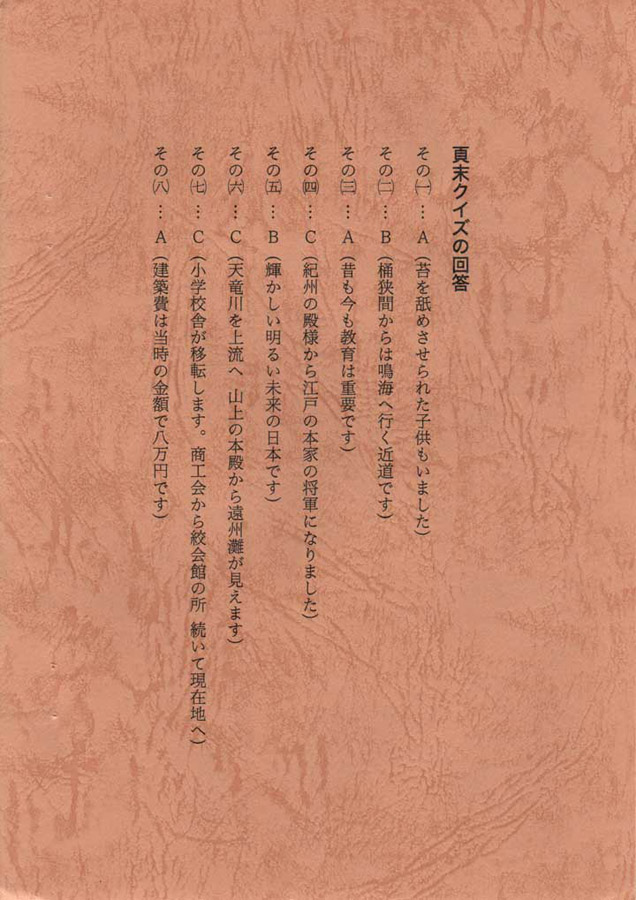 頁末クイズの回答
その㈠… A（苔を舐めさせられた子供もいました）
その㈡… B（桶狭間からは鳴海へ行く近道です）
その㈢… A（昔も今も教育は重要です）
その㈣… C（紀州の殿様から江戸の本家の将軍になりました）
その㈤… B（輝かしい明るい未来の日本です）
その㈥… C（天竜川を上流へ 山上の本殿から遠州灘が見えます）
その㈦… C（小学校舎が移転します。商工会から絞会館の所 続いて現在地へ）
その㈧… A（建築費は当時の金額で八万円です）